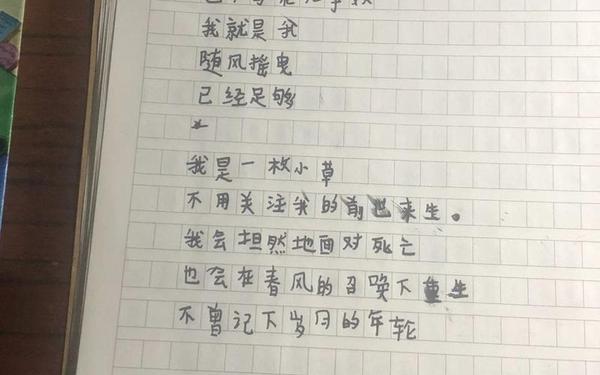 我就是我
随风摇曳
已经足够
*
我是一枚小草
不用关注我的前世来生。
我会坦然地面对死亡
也会在春风的召唤下重生
不曾记下岁月的年轮